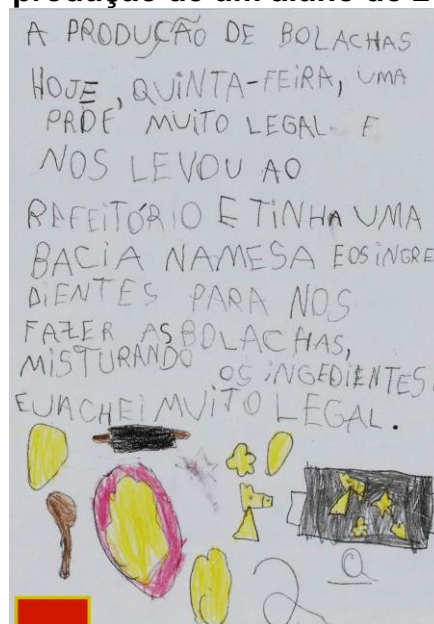 A PRODUÇÃO DE BOLACHAS
HOJE, QUINTA-FEIRA, UMA
PROF MUITO LEGAL E
NOS LEVOU AO
REFEITÓRIO E TINHA UMA
BACIA NAMESA EOSINGRE
DIENTES PARA NOS
FAZER ASBOLACHAS,
MISTURANDO OS INGEDIENTES.
EUACHEI MUITO LEGAL.